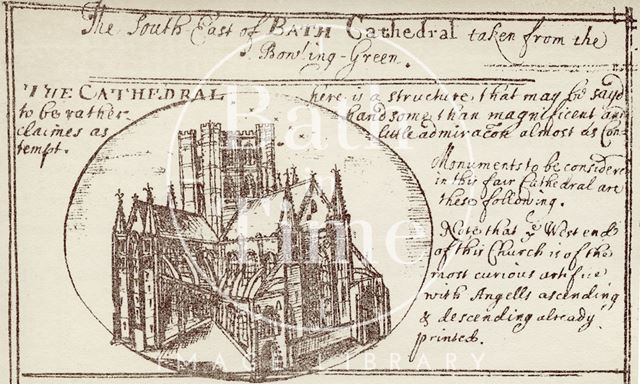 The South East of BATH Cathedral taken from the
Bowling-Green.
THE CATHEDRAL here is a structure, that may be said
to be rather handsome, than magnificent and
claimes as little admiracon almost as Con-
tempt.
Monuments to be considere
in this fair Cathedral are
these following.
Note that ye West end
of this Church is of the
most curious artifice
with Angells ascending
& descending already
printed.
Bath
in
Time
IMAGE LIBRARY